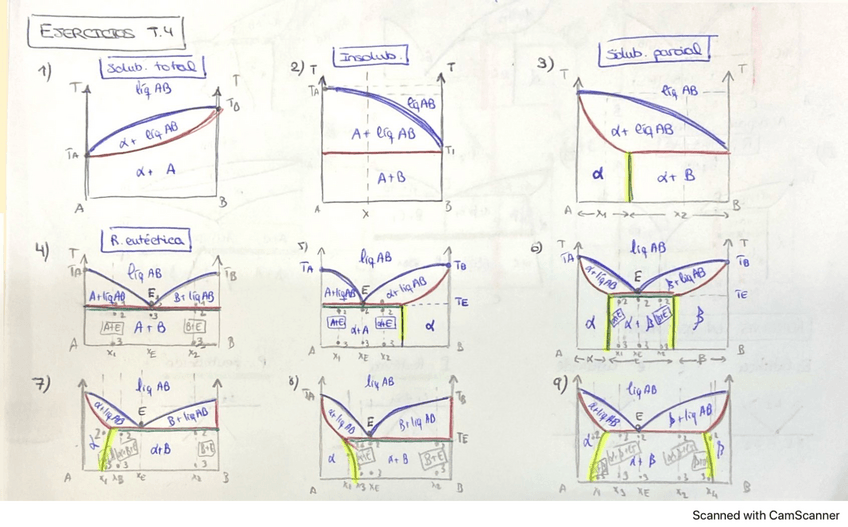 EJERCICIOS T.4
1) Solub. total
líq AB
T T
TB
α + líq AB
TA
α + A
A B
2) Insolub.
T T
TA
líq AB
A + líq AB
T1
A+B
A X B
3) Solub. parcial
T T
líq AB
α + líq AB
α α + B
A x1 x2 B
4) R. eutéctica
T T
TA líq AB TB
E
A+líqAB B+líqAB
A+E A + B B+E
A x1 xE x2 B
5)
líq AB
TA TB
A+líqAB E α+líqAB
TE
A+E α+A α+E α
A x1 xE x2 B
6)
T líq AB T
TA TB
α+líqAB E β+líqAB
TE
α α + β β
A α x1 xE x2 β B
7)
líq AB
α+líqAB E B+líqAB
α α+B B+E
A x1 xB xE B
8)
líq AB
TA TB
α+líqAB E B+líqAB
TE
α α+E α+B B+E
A x1 x3 xE x2 B
9)
líq AB
α+líqAB E β+líqAB
α α + β β
A x1 x3 xE x2 x4 B
Scanned with CamScanner